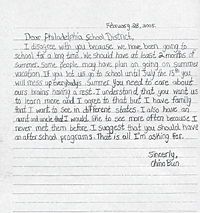 February 28, 2005.
Dear Philadelphia School District,
I disagree with you because we have been going to
school for a long time. We should have at least 2 months of
summer. Some people may have plan on going on summer
vacation. If you let us go to school until July the 15th you
will mess up everybodys Summer. You need to care about
our brains having a rest. I understand that you want us
to learn more and I agree to that but I have family
that I want to see in different states. I also have an
aunt and uncle that I would like to see more often because I
never met them before. I suggest that you should have
an after school programs. That is all I'm asking for.
Sincerly,